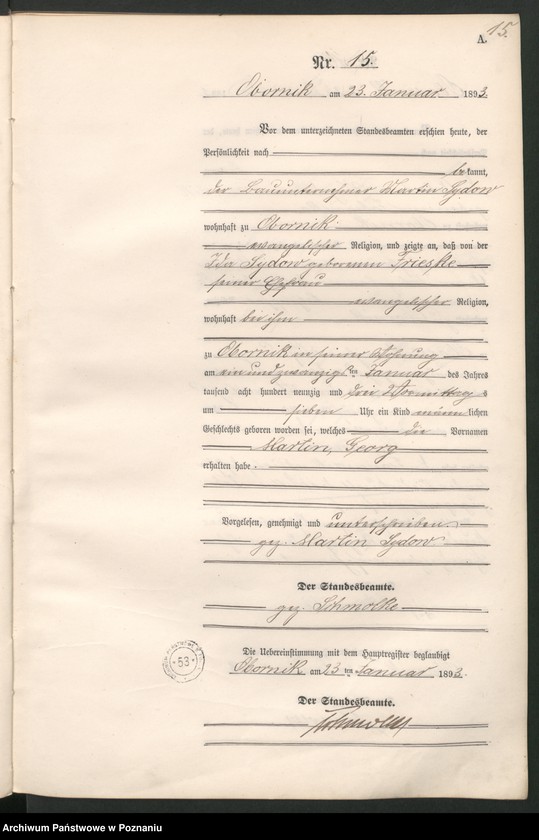 15.
A.
Nr. 15.
Obornik am 23. Januar 1893.
Vor dem unterzeichneten Standesbeamten erschien heute, der
Persönlichkeit nach
bekannt,
der Bauunternehmer Martin Sydow
wohnhaft zu Obornik
evangelischer Religion, und zeigte an, daß von der
Ida Sydow geborenen Frieske
seiner Ehefrau
evangelischer Religion,
wohnhaft bei ihm
zu Obornik in seiner Wohnung
am ein und zwanzigsten Januar des Jahres
tausend acht hundert neunzig und drei Vormittags
um sieben Uhr ein Kind männlichen
Geschlechts geboren worden sei, welches die Vornamen
Martin, Georg
erhalten habe.
Vorgelesen, genehmigt und unterschrieben
gez. Martin Sydow
Der Standesbeamte.
gez. Schmolke
Die Uebereinstimmung mit dem Hauptregister beglaubigt
Obornik am 23ten Januar 1893.
Der Standesbeamte.
Schmolke
53
Archiwum Państwowe w Poznaniu